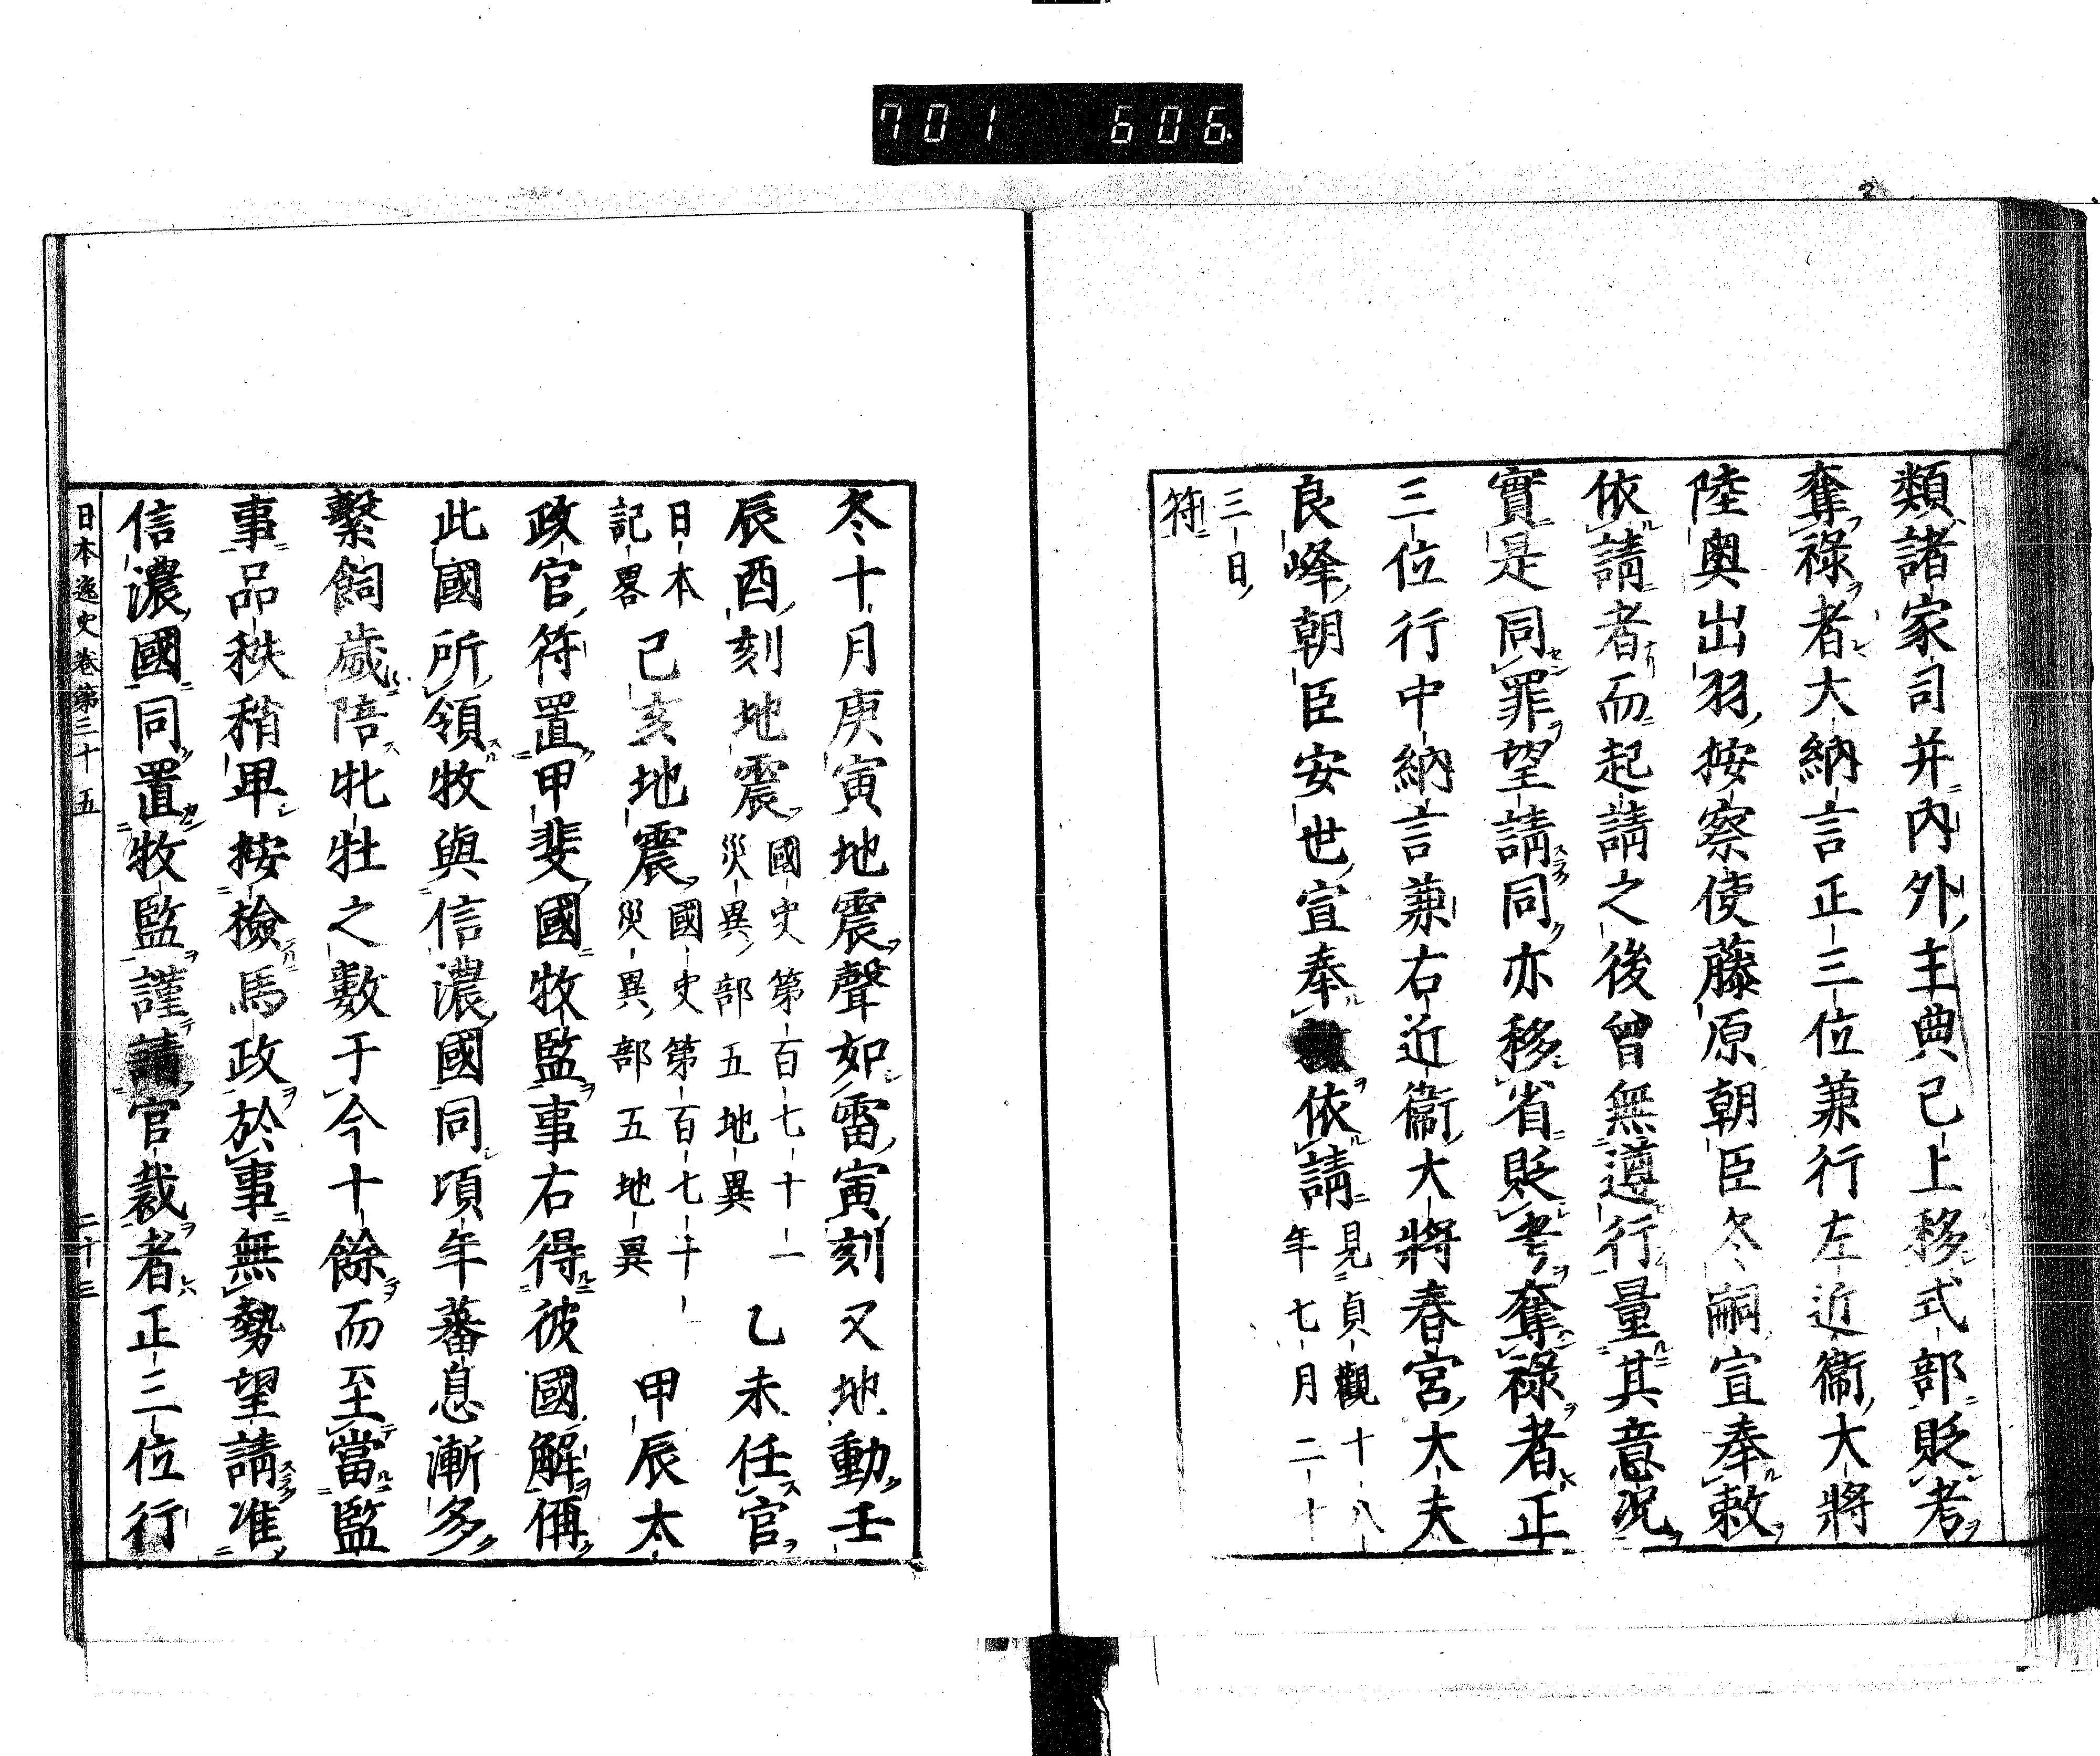 701 606
類諸家司并内外主典已上移式部貶考
奪祿者大納言正三位兼行左近衞大將
陸奥出羽按察使藤原朝臣冬嗣宣奉敕
依請者而起請之後曾無遵行量其意況
實是同罪望請同亦移省貶考奪祿者正
三位行中納言兼右近衞大將春宮大夫
良峰朝臣安世宣奉依請見貞觀十八
年七月二十
三日
符
冬十月庚寅地震聲如雷寅刻又地動壬
辰酉刻地震國史第百七十一
災異部五地異
乙未任官
日本
記畧
己亥地震國史第百七十一
災異部五地異
甲辰太
政官符置甲斐國牧監事右得彼國解偁
此國所領牧與信濃國同項年蕃息漸多
繫飼歲陪牝牡之數于今十餘而至當監
事品秩稍卑按撿馬政於事無勢望請准
信濃國同置牧監謹請官裁者正三位行
日本逸史卷第三十五 二十三